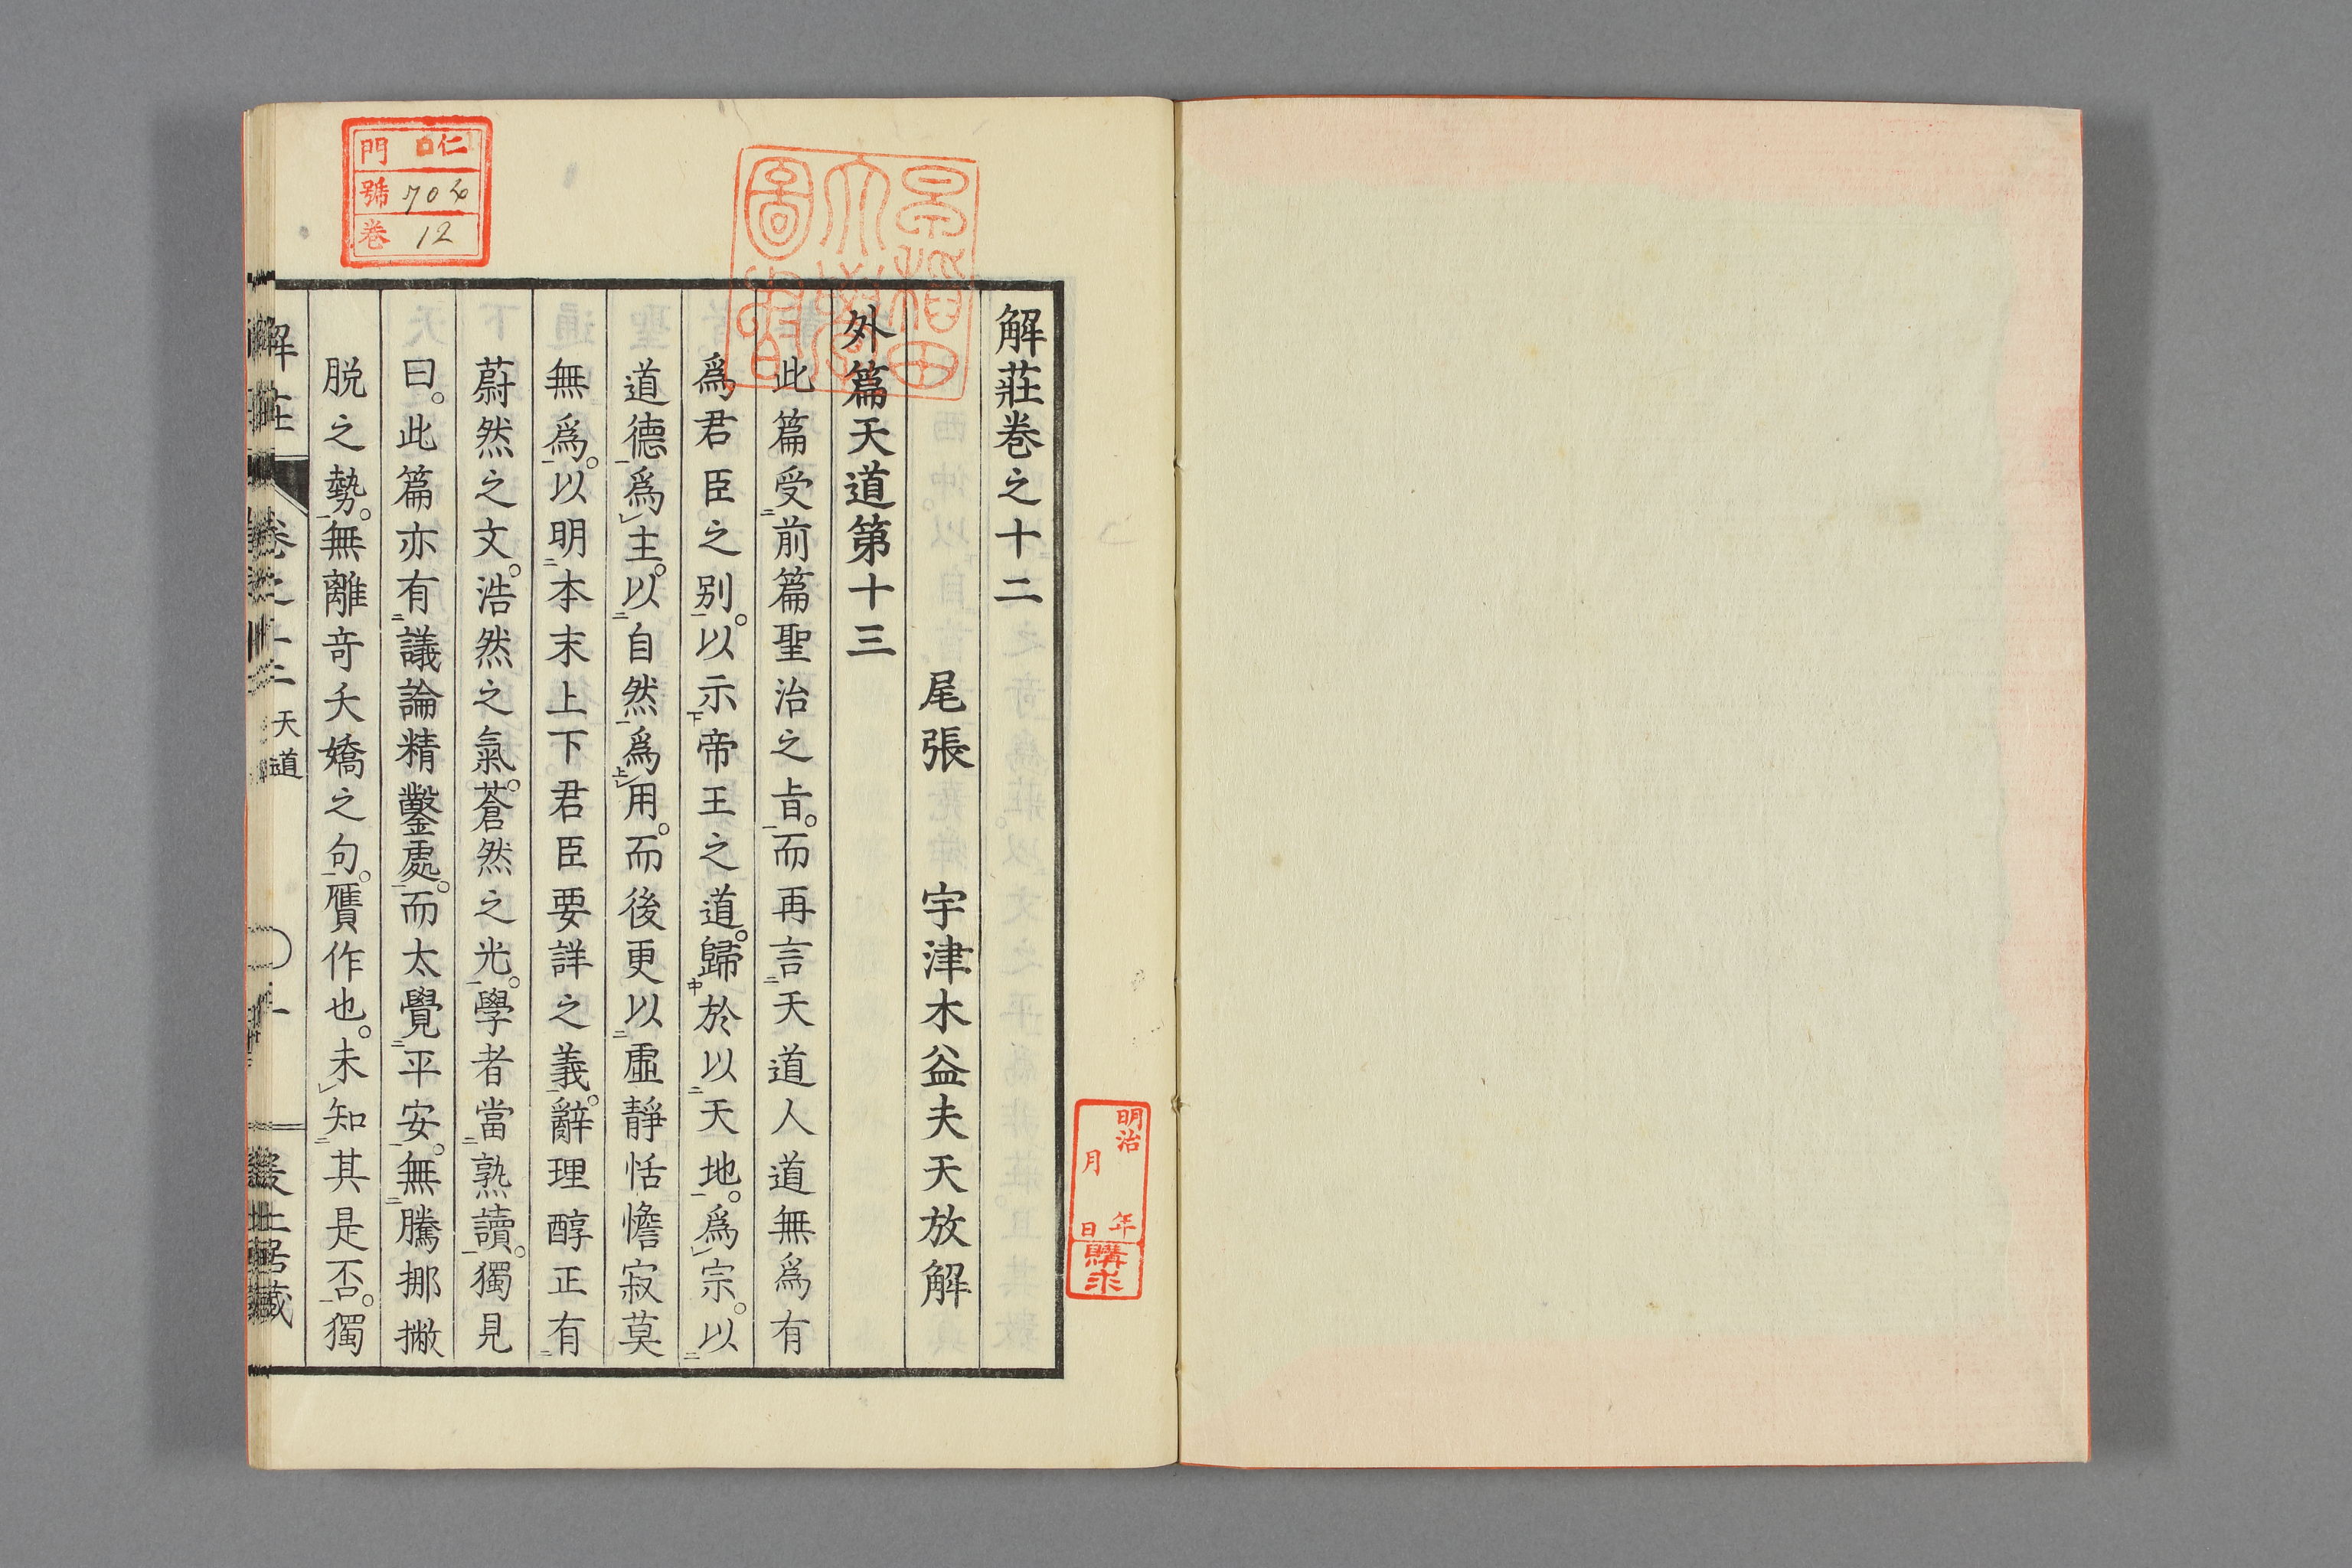 解莊卷之十二
尾張 宇津木益夫天放解
外篇天道第十三
此篇受二前篇聖治之旨一。而再言二天道人道無爲有
爲君臣之別一。以示下帝王之道。歸中於以二天地一。爲レ宗。以二
道德一爲レ主。以二自然一爲上レ用。而後更以二虛靜恬憺寂莫
無爲一。以明二本末上下君臣要詳之義一。辭理醇正有二
蔚然之文。浩然之氣。蒼然之光一。學者當二熟讀一。獨見
曰。此篇亦有二議論精鑿處一。而太覺二平安一。無二騰挪撇
脱之勢一。無離奇夭嬌之句一。贋作也。未レ知二其是否一。獨
解莊 卷之十二 天道
門 仁
號 704
卷 12
早稻田大學圖書
明治 年 月 日 購求